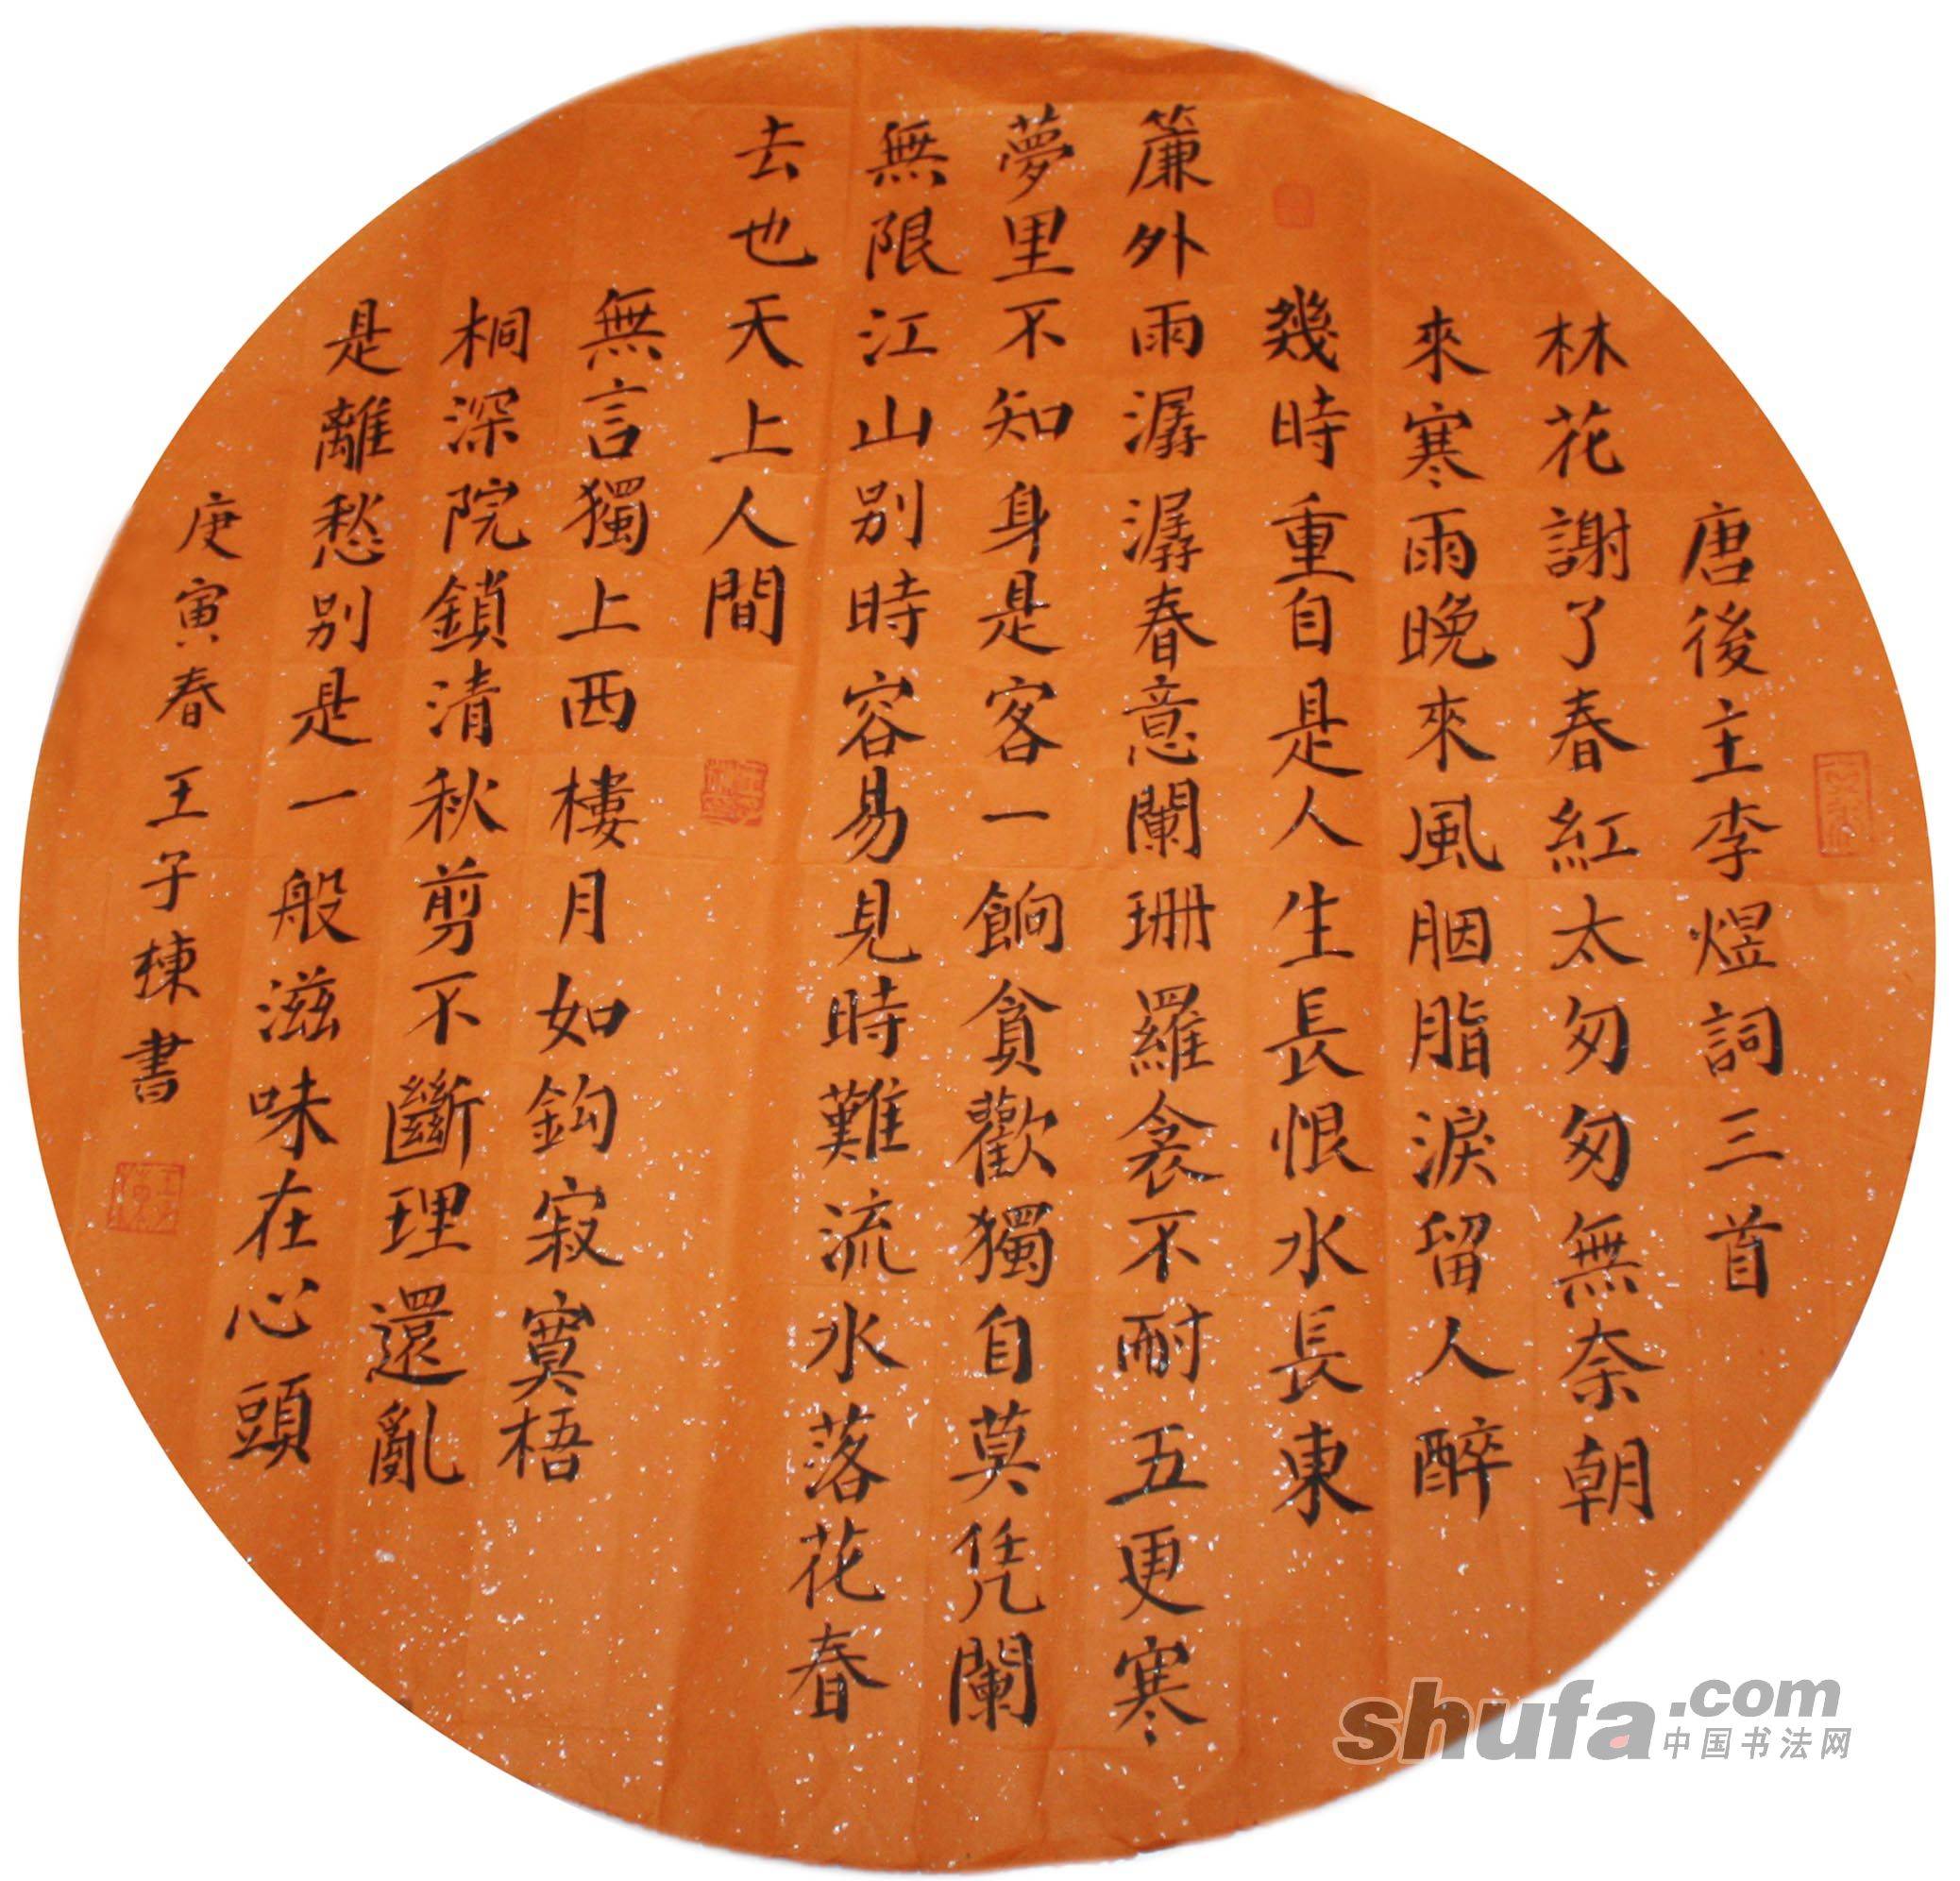 唐後主李煜詞三首
林花謝了春紅太匆匆無奈朝
來寒雨晚來風胭脂淚留人醉
幾時重自是人生長恨水長東
簾外雨潺潺春意闌珊羅衾不耐五更寒
夢里不知身是客一餉貪歡獨自莫凭闌
無限江山别時容易見時難流水落花春
去也天上人間
無言獨上西樓月如鈎寂寞梧
桐深院鎖清秋剪不斷理還亂
是離愁别是一般滋味在心頭
庚寅春王子棟書
shufa.com
中国书法网